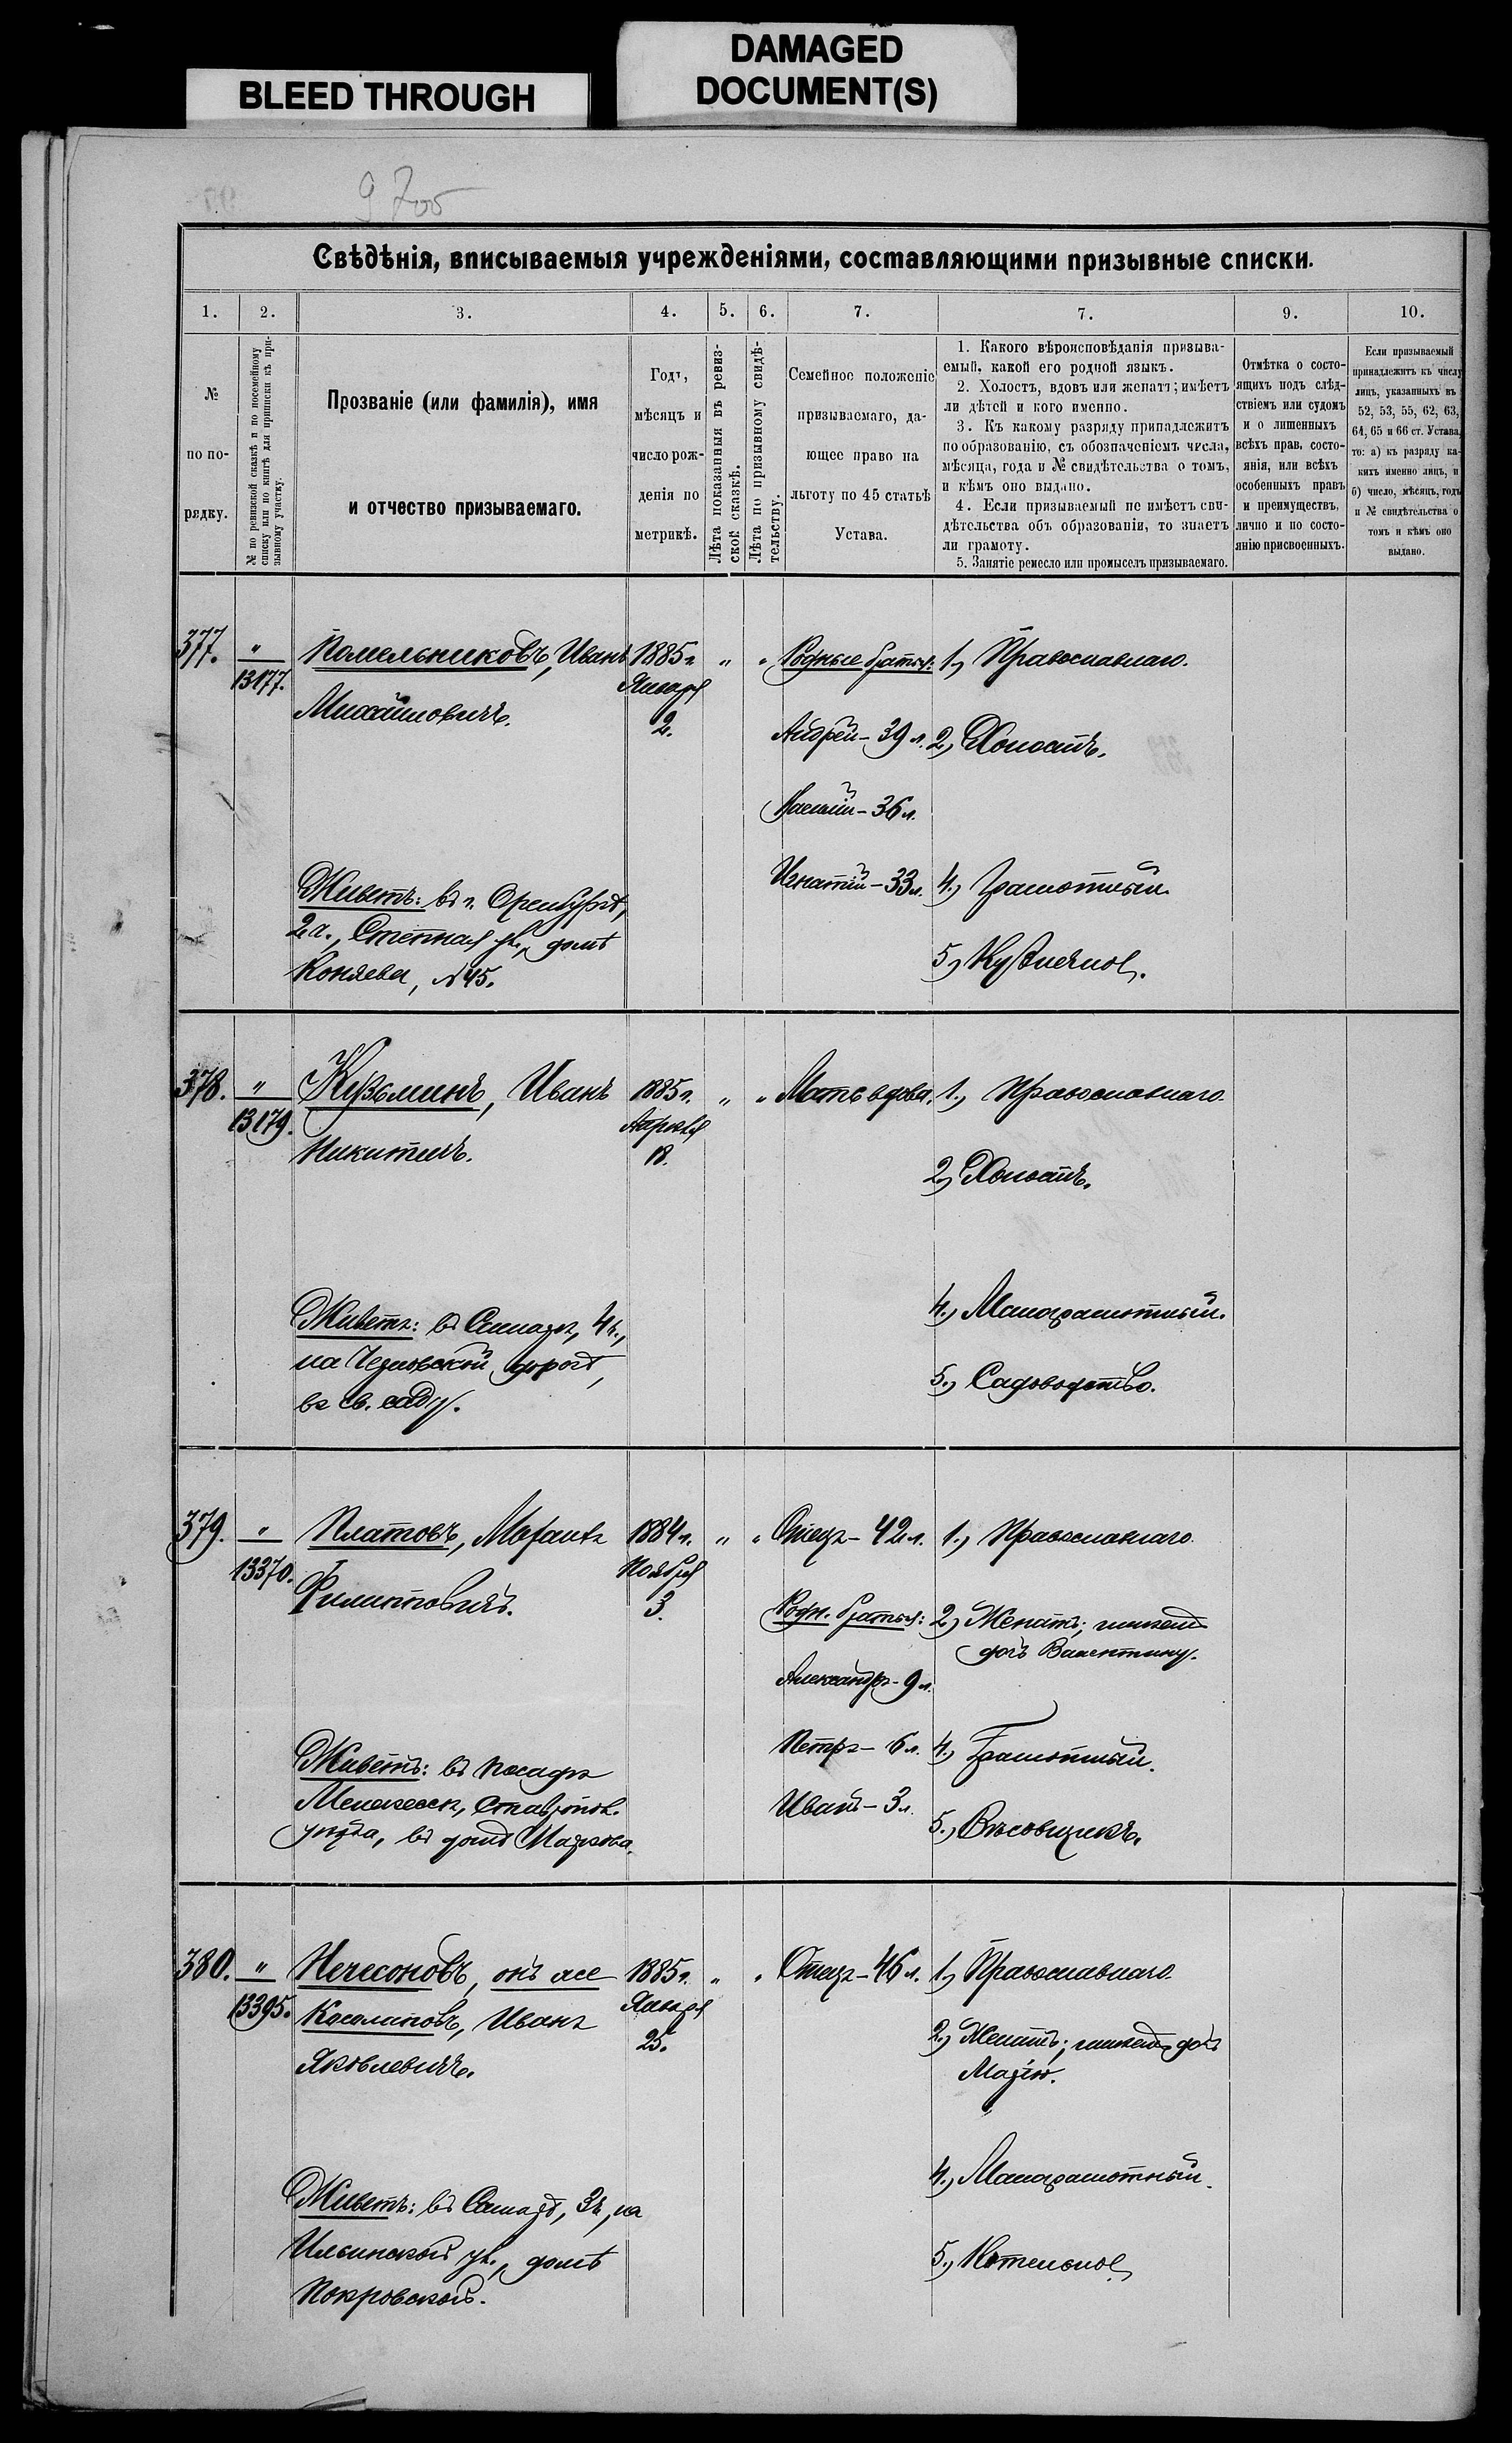 BLEED THROUGH
DAMAGED
DOCUMENT(S)
Свѣдѣнія, вписываемыя учрежденіями, составляющими призывные списки.
1. 2. 3. 4. 5. 6. 7. 7. 9. 10.
№
по по-
рядку.
№ по ревизской сказкѣ и по посемейному
списку или по книгѣ для приписки къ при-
зывному участку.
Прозваніе (или фамилія), имя
и отчество призываемаго.
Годъ,
мѣсяцъ и
число рож-
денія по
метрикѣ.
Лѣта показанныя въ ревиз-
ской сказкѣ.
Лѣта по призывному свидѣ-
тельству.
Семейное положеніе
призываемаго, да-
ющее право на
льготу по 45 статьѣ
Устава.
1. Какого вѣроисповѣданія призыва-
емый, какой его родной языкъ.
2. Холостъ, вдовъ или женатъ; имѣетъ
ли дѣтей и кого именно.
3. Къ какому разряду принадлежитъ
по образованію, съ обозначеніемъ числа,
мѣсяца, года и № свидѣтельства о томъ,
и кѣмъ оно выдано.
4. Если призываемый не имѣетъ сви-
дѣтельства объ образованіи, то знаетъ
ли грамоту.
5. Занятіе ремесло или промыселъ призываемаго.
Отмѣтка о состо-
ящихъ подъ слѣд-
ствіемъ или судомъ
и о лишенныхъ
всѣхъ прав. состо-
янія, или всѣхъ
особенныхъ правъ
и преимуществъ,
лично и по состо-
янію присвоенныхъ.
Если призываемый
принадлежитъ къ числу
лицъ, указанныхъ въ
52, 53, 55, 62, 63,
64, 65 и 66 ст. Устава,
то: а) къ разряду ка-
кихъ именно лицъ, и
б) число, мѣсяцъ, годъ
и № свидѣтельства о
томъ и кѣмъ оно
выдано.
377. " Помельниковъ, Иванъ 1885 г. " " Родные братья: 1.) Православнаго.
13177. Января
Михайловичъ. 2.
Андрей - 39 л. 2.) Холостъ.
Василій - 36 л.
Игнатій - 33 л. 4.) Грамотный.
Живетъ: въ г. Оренбургѣ,
2 ч., Степная ул., домъ
Коняева, № 45.
5.) Кузнечное.
378. " Кузьминъ, Иванъ 1885 г. " " Мать вдова. 1.) Православнаго.
13179. Апрѣля
Никитичъ. 18.
2.) Холостъ.
4.) Малограмотный.
Живетъ: въ Самарѣ, 4 ч.,
дорогѣ,
въ св. саду.
5.) Садоводство.
379. " Платовъ, 1884 г. " " Отецъ - 42 л. 1.) Православнаго.
13370. Ноября
Филипповичъ. 3.
Родн. братья: 2.) Женатъ; имѣетъ
дочь Валентину.
Александръ - 9 л.
Петръ - 6 л. 4.) Грамотный.
Живетъ: въ посадѣ
Мелекессѣ, Ставропол.
уѣзда, въ домѣ Маркова.
Иванъ - 3 л.
5.) Вѣсовщикъ.
380. " онъ же 1885 г. " " Отецъ - 46 л. 1.) Православнаго.
13395. Января
Иванъ 25.
Яковлевичъ.
2.) Женатъ; имѣетъ дочь
Марію.
4.) Малограмотный.
Живетъ: въ Самарѣ, 3 ч, на
Ильинской ул., домъ
Покровской.
5.) Котельное.